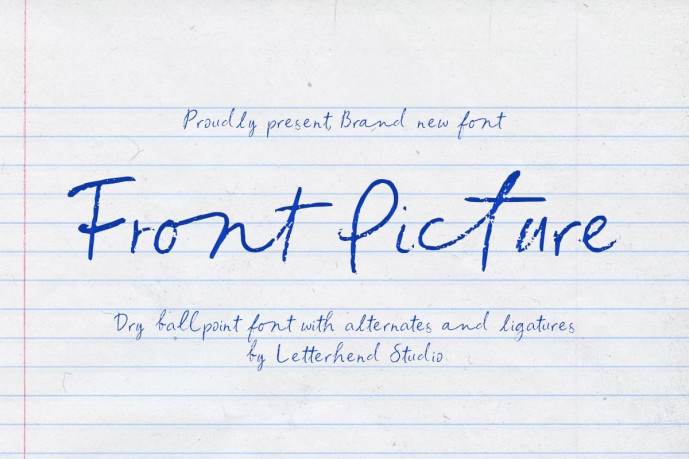 Proudly present, Brand new font
Front Picture
Dry ballpoint font with alternates and ligatures
by Letterhend Studio